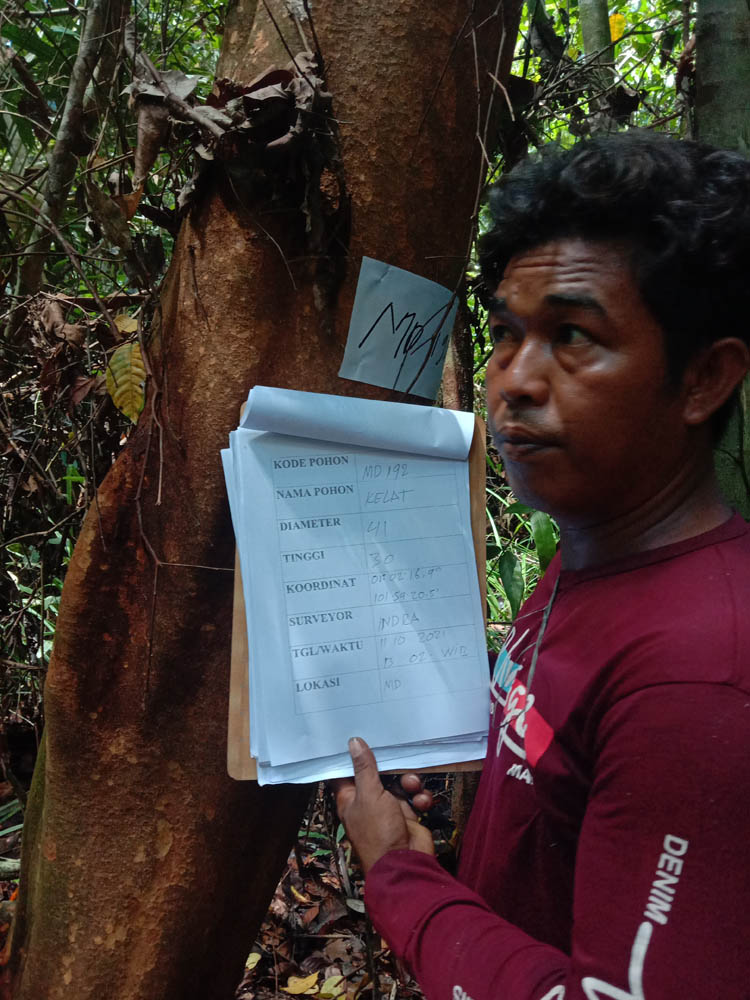 KODE POHON MD 192
NAMA POHON KELAT
DIAMETER 41
TINGGI 30
KOORDINAT
SURVEYOR INDRA
TGL/WAKTU 11 10 2021
02 WIB
LOKASI MD
DENIM